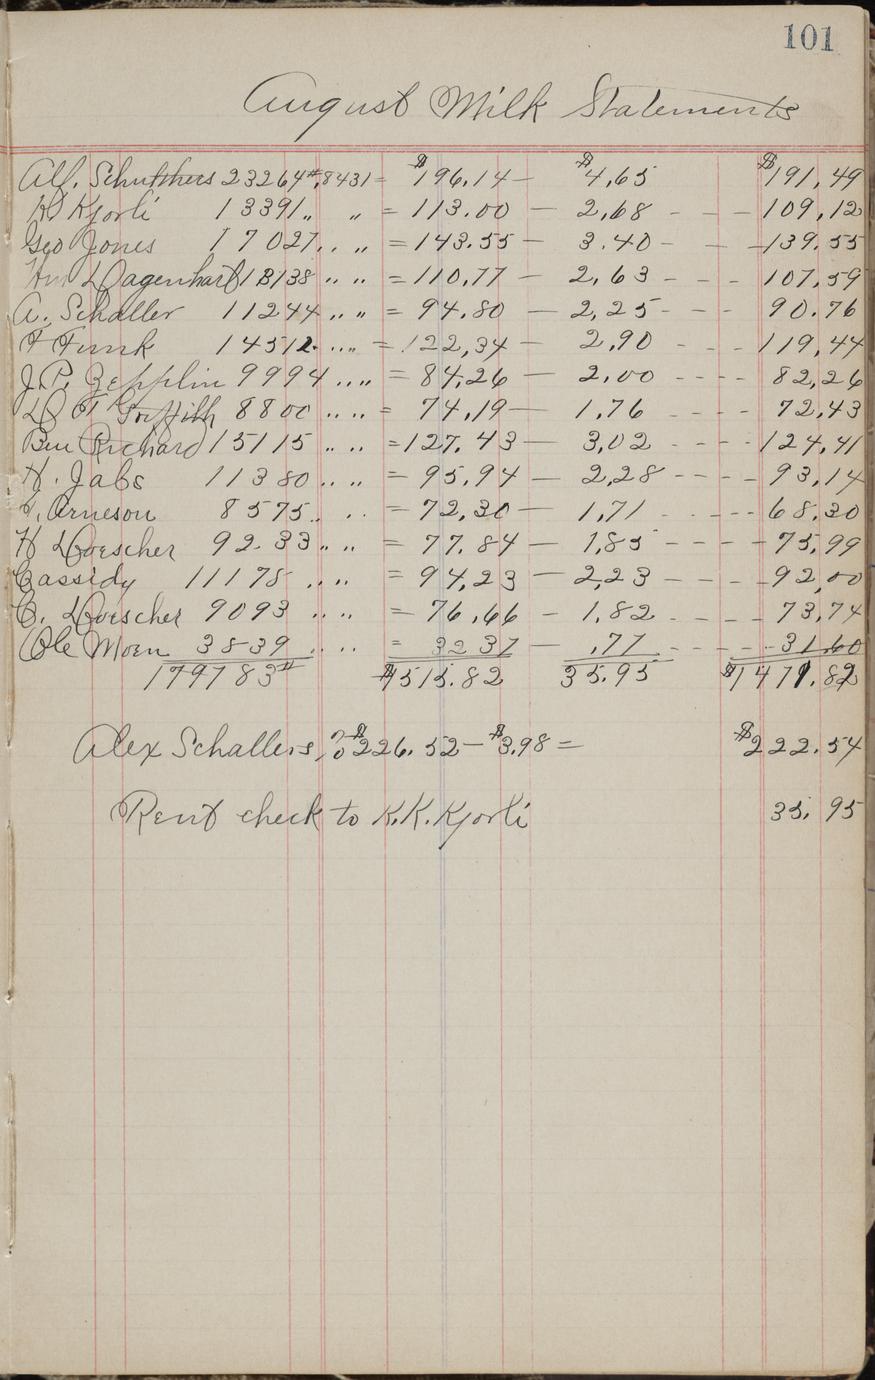 101
August Milk Statements
Alf. Schutthers 23264# .8431 = $196.14 — $4.65 $191.49
K Kjorli 13391 „ „ = 113.00 — 2.68 - - - 109.12
Geo Jones 17027 „ „ = 143.55 — 3.40 - - - 139.55
Hagenhart 13138 „ „ = 110.77 — 2.63 - - 107.59
A. Schaller 11244 „ „ = 94.80 — 2.25 - - - 90.76
F Funk 14512 „ „ = 122.34 — 2.90 - - - 119.44
J.P. Zepplin 9994 „ „ = 84.26 — 2.00 - - - - 82.26
Griffith 8800 „ „ = 74.19 — 1.76 - - - - 72.43
Ben Richard 15115 „ „ = 127.43 — 3.02 - - - - 124.41
H. Jabs 11380 „ „ = 95.94 — 2.28 - - - - 93.14
Arneson 8575 „ „ = 72.30 — 1.71 - - - - - 68.30
H Loescher 9233 „ „ = 77.84 — 1.85 - - - - 75.99
Cassidy 11178 „ „ = 94.23 — 2.23 - - - - 92.00
C. Loescher 9093 „ „ = 76.66 — 1.82 - - - - 73.74
Ole Moen 3839 „ „ = 32 37 — .77 - - - - - 31.60
179783# $1515.82 35.95 $1471.82
Alex Schallers % $226.52 — $3.98 = $222.54
Rent check to K.K. Kjorli 35.95